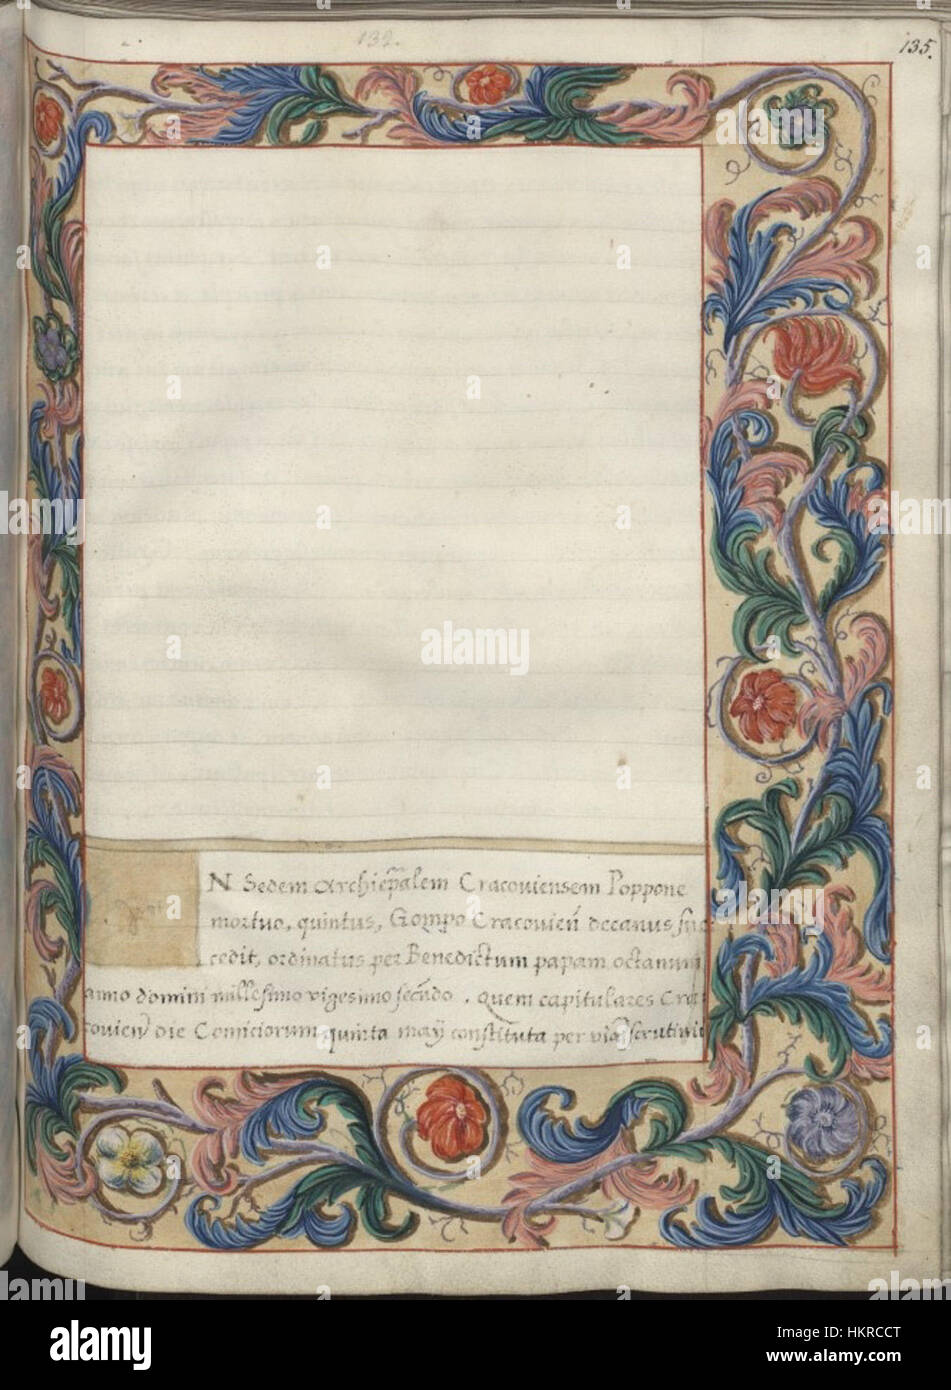 132.
135.
N Sedem archiep̃alem Cracouiensem Poppone
mortuo, quintus, Gompo Cracouien̄ decanus suc
cedit, ordinatus per Benedictum papam octanum
anno domini millesimo vigesimo secũdo. quem capitulares Cra
couien̄ die Comiciorum quinta maÿ constituta per viã scrutinii
alamy
Image ID: HKRCCT
www.alamy.com